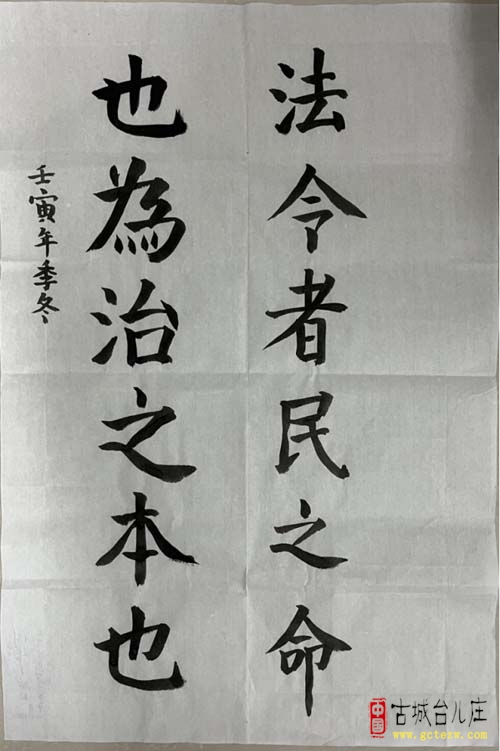 法令者民之命
也為治之本也
壬寅年季冬
中国
古城台儿庄
www.gctezw.com